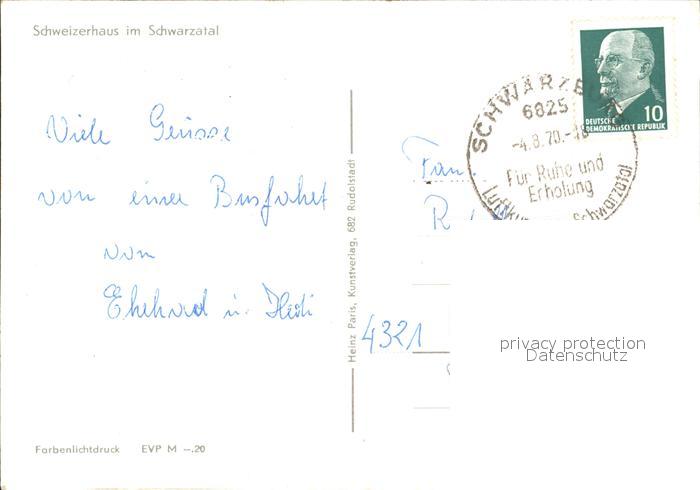 Schweizerhaus im Schwarzatal
Viele Grüsse
von einer Busfahrt
von
Ekehard u. Heidi
Farbenlichtdruck EVP M –.20
Heinz Paris, Kunstverlag, 682 Rudolstadt
DEUTSCHE
DEMOKRATISCHE REPUBLIK
10
6825
-4.8.70.-
Für Ruhe und
Erholung
Schwarzatal
Fam.
4321
privacy protection
Datenschutz